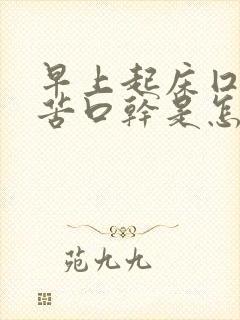 早上起床口
苦口幹是怎
苑九九